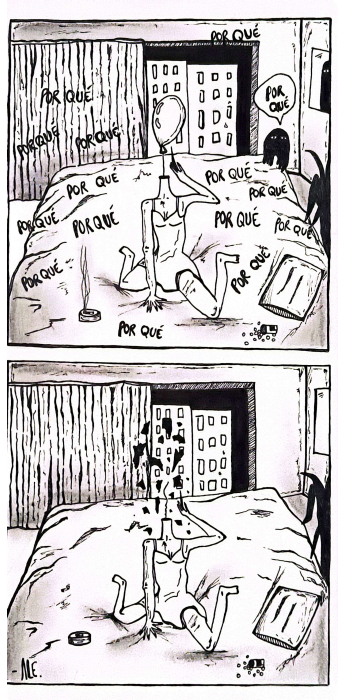 POR QUÉ
POR QUÉ
POR
QUÉ
POR QUÉ
POR QUÉ
POR QUÉ
POR QUÉ
POR QUÉ
POR QUÉ
POR QUÉ
POR QUÉ
POR QUÉ
POR QUÉ
POR QUÉ
POR QUÉ
ALE.